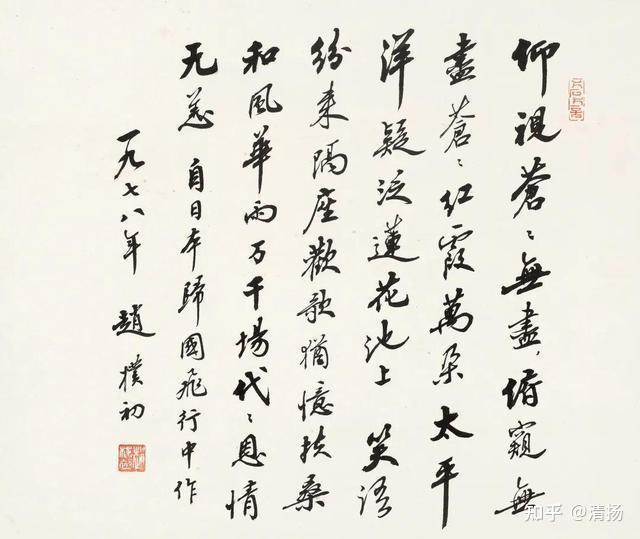 仰視蒼〻無盡〻俯窺無
盡蒼〻紅霞萬朵太平
洋疑泛蓮花池上 笑語
紛来隔座歡歌猶憶扶桑
和風華雨万千場代〻恩情
无恙 自日本歸國飛行中作
一九七八年 趙樸初
知乎 @清扬